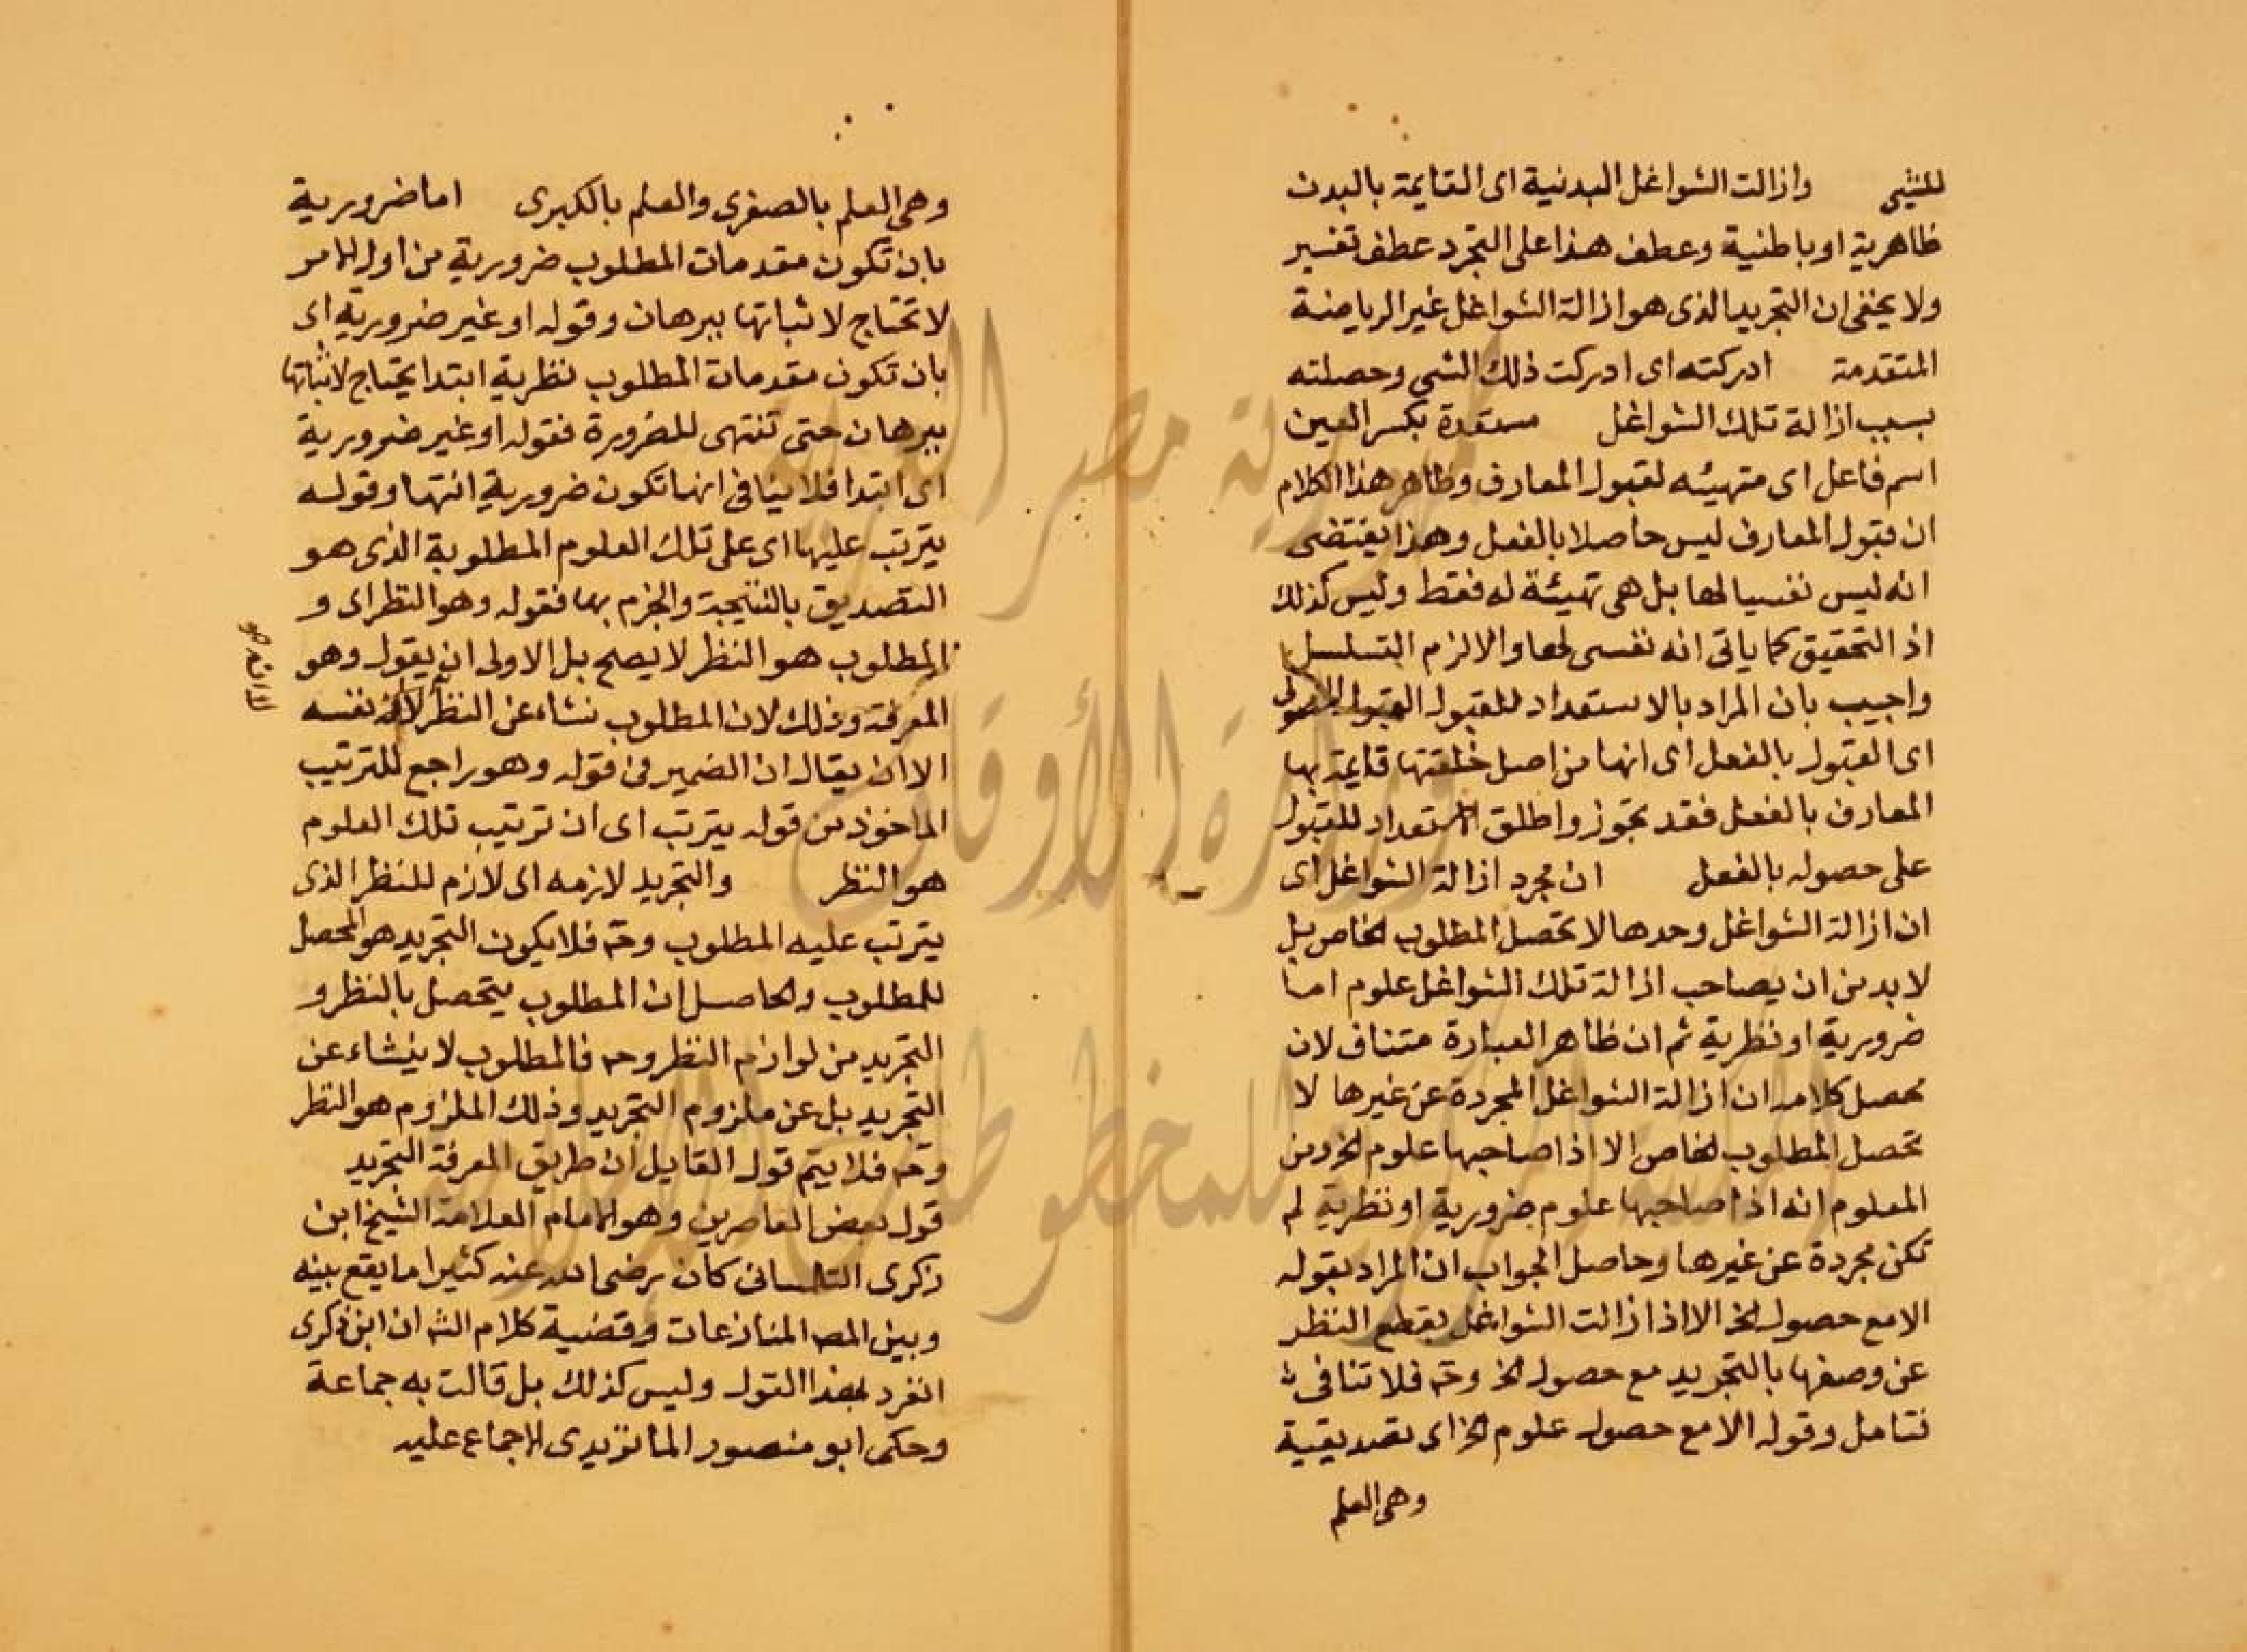 للشيى وازالت الشواغل البدنية اى القايمة بالبدن
ظاهرية او باطنية وعطف هذا على التجرد عطف تفسير
ولا يخفى ان التجريد الذى هو ازالة الشواغل غير الرياضة
المتقدمة ادركته اى ادركت ذلك الشى وحصلته
بسبب ازالة تلك الشواغل مستعدة بكسر العين
اسم فاعل اى متهيئه لقبول المعارف وظاهر هذا الكلام
ان قبول المعارف ليس حاصلا بالفعل وهذا يقتضى
انه ليس نفسيا لها بل هى تهيئة له فقط وليس كذلك
اذ التحقيق كما ياتى انه نفسى لها والا لزم التسلسل
واجيب بان المراد بالاستعداد للقبول القبول
اى القبول بالفعل اى انها من اصل خلقتها قايمة بها
المعارف بالفعل فقد تجوز واطلق الاستعداد للقبول
على حصوله بالفعل ان مجرد ازالة الشواغل اى
ان ازالة الشواغل وحدها لا تحصل المطلوب الخاص بل
لا بد من ان يصاحب ازالة تلك الشواغل علوم اما
ضرورية او نظرية ثم ان ظاهر العبارة متناف لان
محصل كلامه ان ازالة الشواغل المجردة عن غيرها لا
تحصل المطلوب الخاص الا اذا صاحبها علوم الخ ومن
المعلوم انه اذا صاحبها علوم ضرورية او نظرية لم
تكن مجردة عن غيرها وحاصل الجواب ان المراد بقوله
الا مع حصول الخ الا اذا زالت الشواغل بقطع النظر
عن وصفها بالتجريد مع حصول الخ وح فلا تنافى
فتامل وقوله الا مع حصول علوم الخ اى تصديقية
وهى العلم
وهى العلم بالصغرى والعلم بالكبرى اما ضرورية
بان تكون مقدمات المطلوب ضرورية من اول الامر
لا تحتاج لاثباتها ببرهان وقوله او غير ضرورية اى
بان تكون مقدمات المطلوب نظرية ابتدا يحتاج لاثباتها
ببرهان حتى تنتهى للضرورة فقوله او غير ضرورية
اى ابتدا فلا ينافى انها تكون ضرورية انتها وقوله
يترتب عليها اى على تلك العلوم المطلوبة الذى هو
التصديق بالنتيجة والجزم بها فقوله وهو النظر اى و
المطلوب هو النظر لا يصح بل الاولى ان يقول وهو
المعرفة وذلك لان المطلوب نشاء عن النظر لا انه نفسه
الا ان يقال ان الضمير فى قوله وهو راجع للترتيب
الماخوذ من قوله يترتب اى ان ترتيب تلك العلوم
هو النظر والتجريد لازمه اى لازم للنظر الذى
يترتب عليه المطلوب وح فلا يكون التجريد هو المحصل
للمطلوب والحاصل ان المطلوب يتحصل بالنظر و
التجريد من لوازم النظر وح فالمطلوب لا ينشاء عن
التجريد بل عن ملزوم التجريد وذلك الملزوم هو النظر
وح فلا يتم قول القايل ان طريق المعرفة التجريد
قول بعض المعاصرين وهو الامام العلامة الشيخ ابن
زكرى التلمسانى كان رضى الله عنه كثيرا ما يقع بينه
وبين المص المنازعات وقضية كلام الش ان ابن زكرى
انفرد بهذا القول وليس كذلك بل قالت به جماعة
وحكى ابو منصور الماتريدى الاجماع عليه